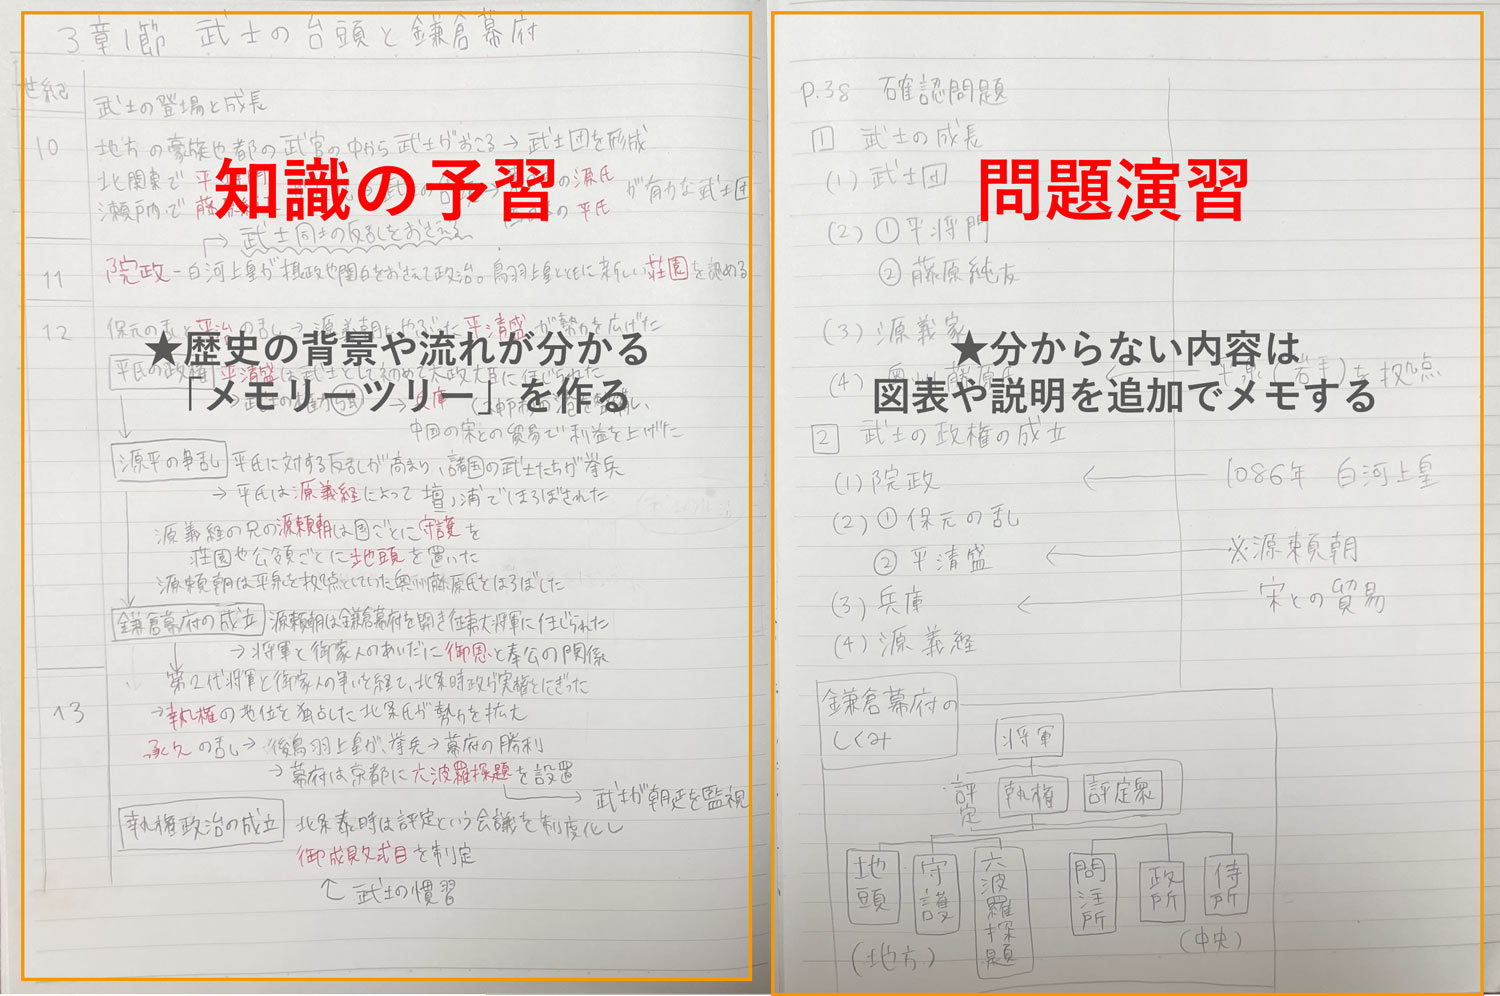 3章1節 武士の台頭と鎌倉幕府
世紀
武士の登場と成長
10 地方の豪族や都の武官の中から武士がおこる→武士団を形成
北関東で 平
の源氏
が有力な武士団
瀬戸内で 藤
の 平氏
知識の予習
→武士同士の反乱をおさえる
11 院政-白河上皇が摂政や関白をおさえて政治。鳥羽上皇とともに新しい荘園を認める
12 保元の乱と平治の乱→源義朝 平清盛が勢力を広げた
★歴史の背景や流れが分かる
平氏の政権 平清盛は武士として初めて太政大臣に任じられた
「メモリーツリー」を作る
兵庫
中国の宋との貿易で利益を上げた
源平の争乱 平氏に対する反乱が高まり、諸国の武士たちが挙兵
→平氏は源義経によって壇ノ浦でほろぼされた
源義経の兄の源頼朝は国ごとに守護を
荘園や公領ごとに地頭を置いた
源頼朝は平泉を拠点としていた奥州藤原氏をほろぼした
鎌倉幕府の成立 源頼朝は鎌倉幕府を開き征夷大将軍に任じられた
→将軍と御家人のあいだに御恩と奉公の関係
第2代将軍と御家人の争いを経て、北条時政が実権をにぎった
13 →執権の地位を独占した北条氏が勢力を拡大
承久の乱→後鳥羽上皇が、挙兵→幕府の勝利
→幕府は京都に六波羅探題を設置
→武士が朝廷を監視
執権政治の成立 北条泰時は評定という会議を制度化し
御成敗式目を制定
↑武士の慣習
P.38 確認問題
1 武士の成長
(1) 武士団
問題演習
(2) ①平将門
②藤原純友
(3) 源義家
★分からない内容は
(4)
(岩手)を拠点
図表や説明を追加でメモする
2 武士の政権の成立
(1)院政 ← 1086年 白河上皇
(2)①保元の乱
②平清盛 ← ※源頼朝
(3)兵庫 ← 宋との貿易
(4)源義経
鎌倉幕府の
しくみ
将軍
評定
執権 評定衆
地頭 守護 六波羅探題 問注所 政所 侍所
(地方) (中央)